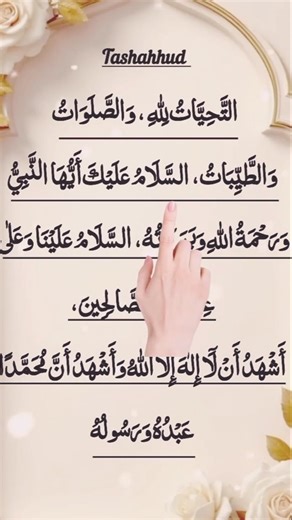 Tashahhud
التَّحِيَّاتُ لِلّٰهِ، وَالصَّلَوَاتُ
وَالطَّيِّبَاتُ، السَّلَامُ عَلَيْكَ أَيُّهَا النَّبِيُّ
وَرَحْمَةُ اللّٰهِ السَّلَامُ عَلَيْنَا وَعَلٰى
أَشْهَدُ أَنْ لَّا إِلٰهَ إِلَّا اللّٰهُ وَأَشْهَدُ أَنَّ مُحَمَّدًا
عَبْدُهُ وَرَسُولُهُ